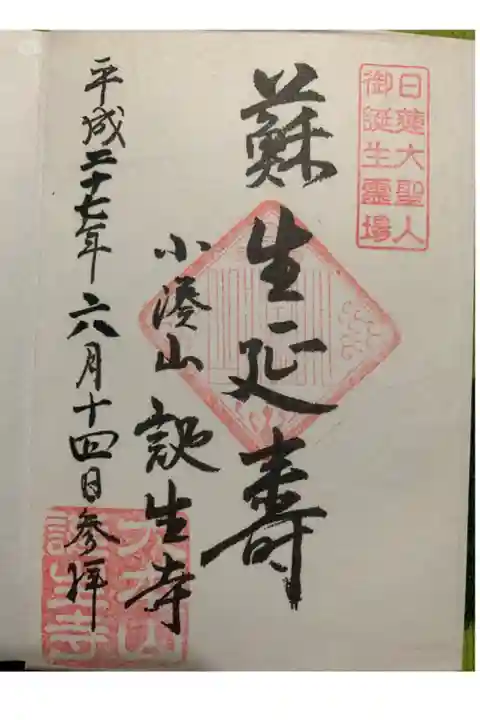 日蓮大聖人
御誕生霊場
蘇生延壽
小湊山 誕生寺
平成二十七年六月十四日参拝
大本山
誕生寺